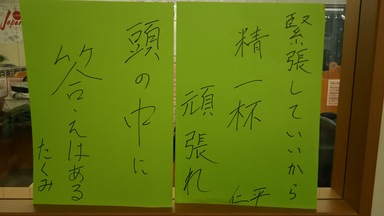 緊張していいから
精一杯
頑張れ
仁平
頭の中に
答えはある
たくみ